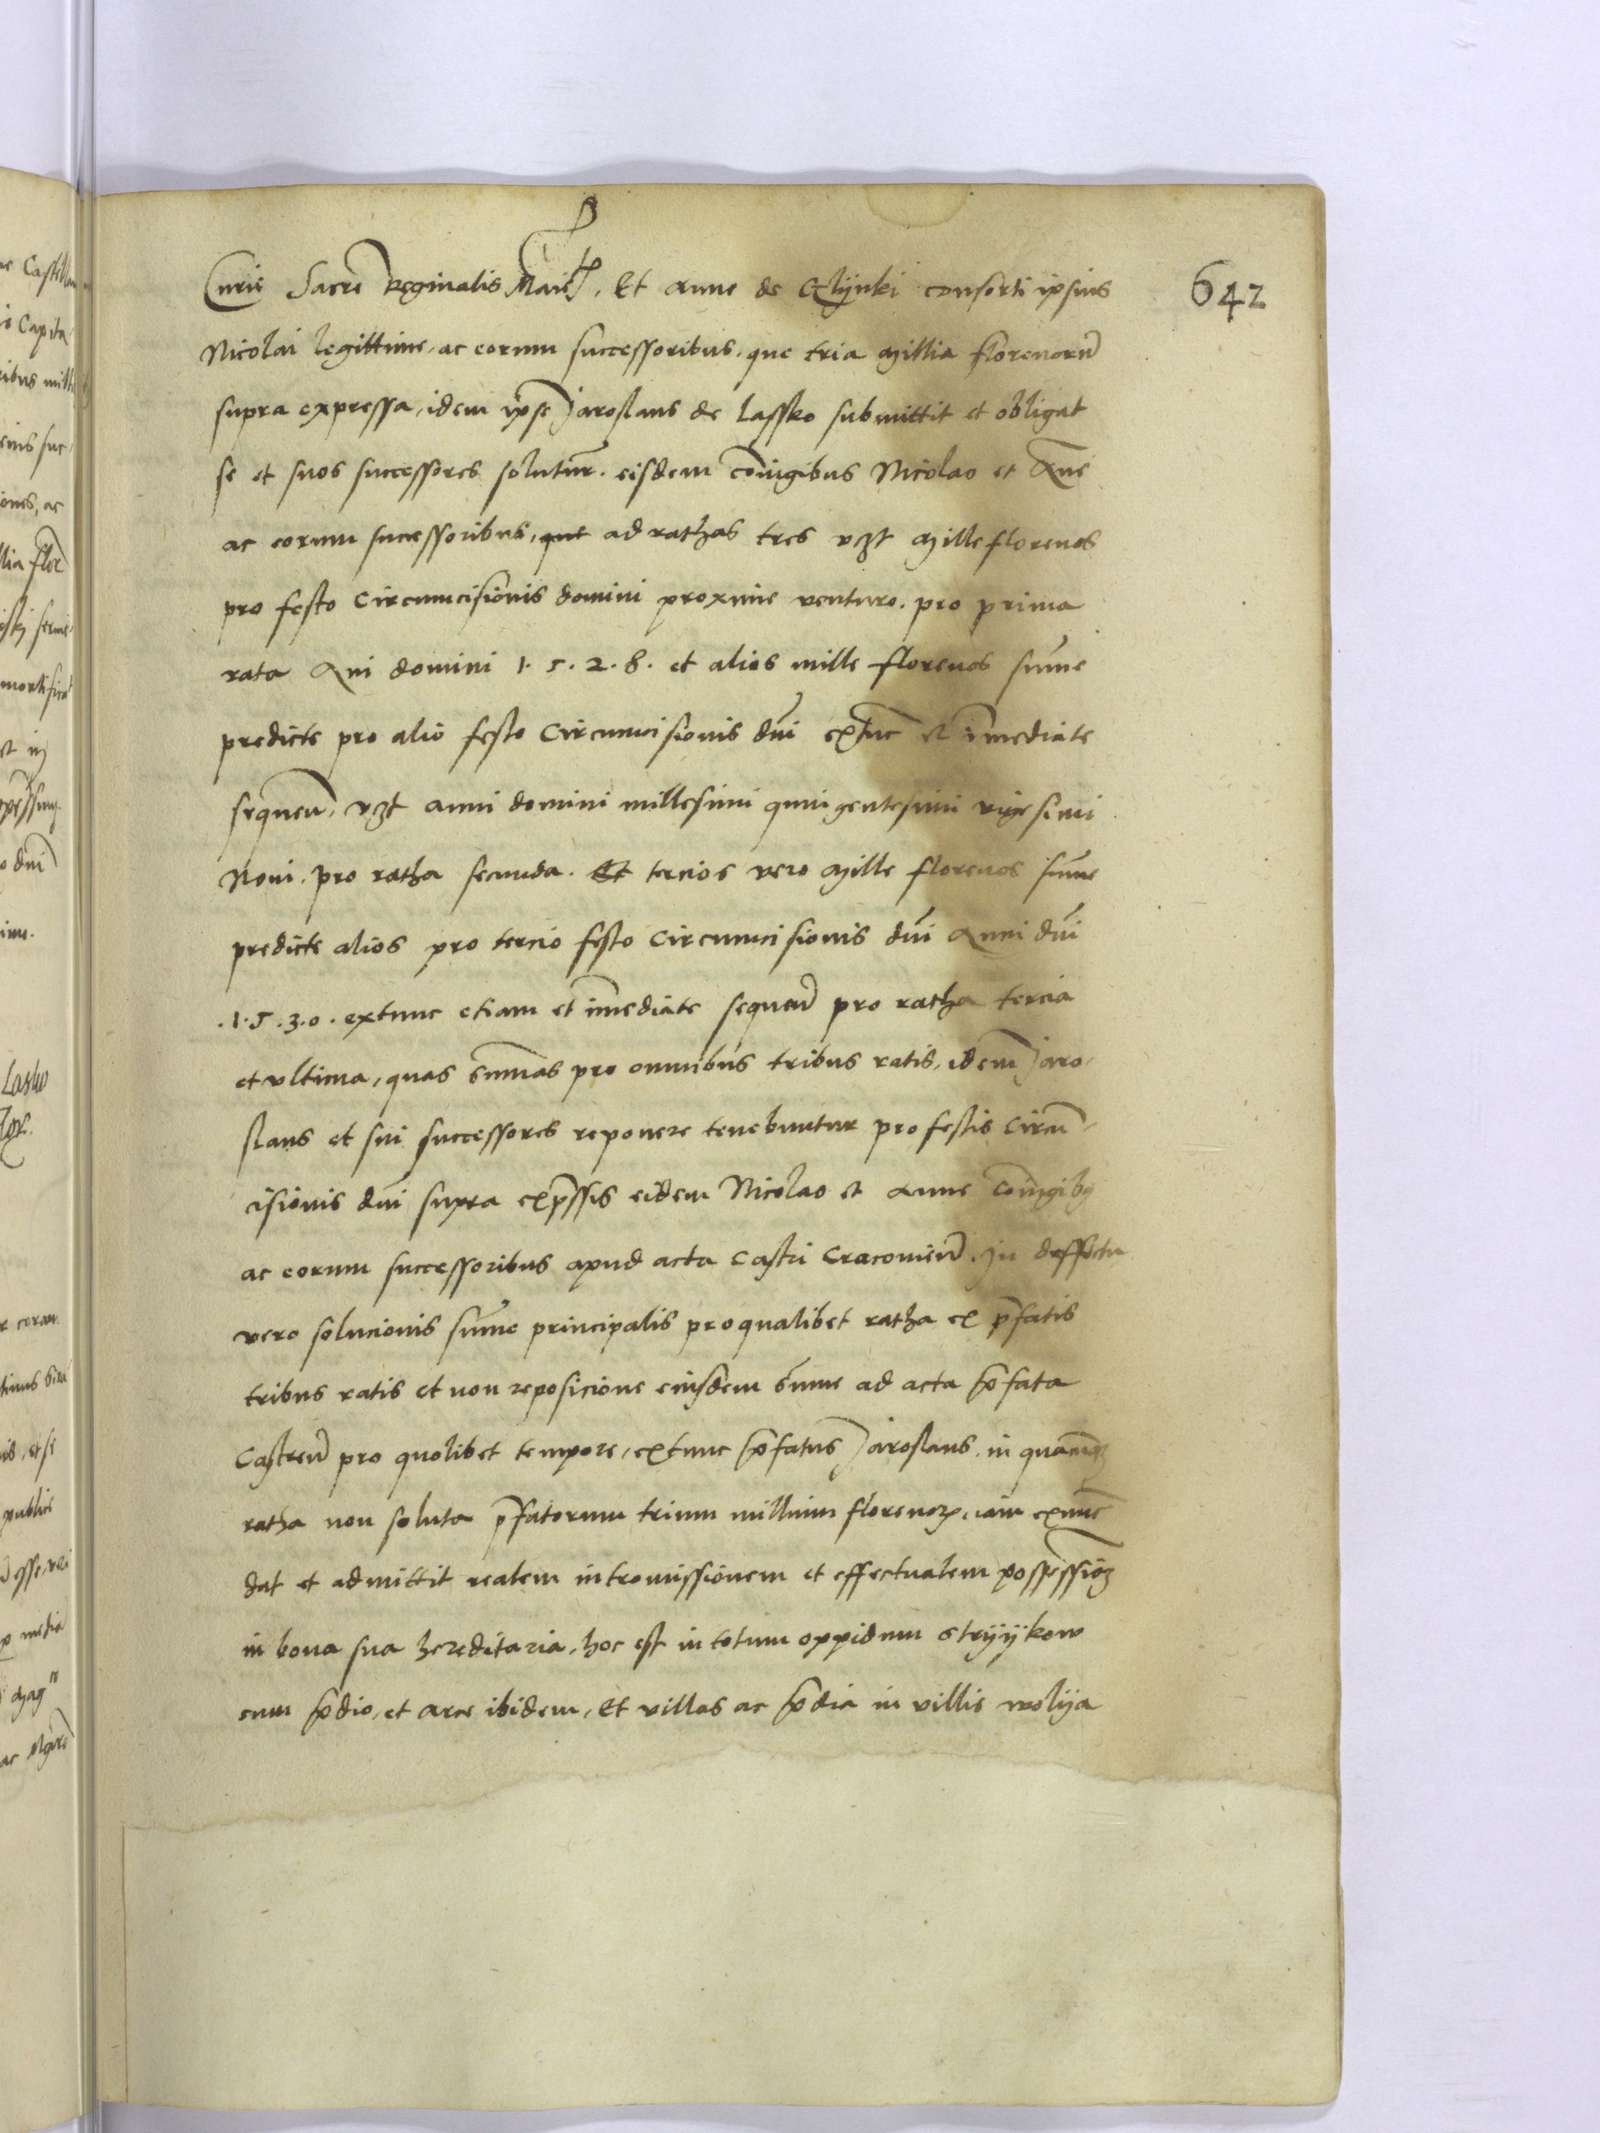 642
Curie Sacre Reginalis Maiest. Et Anne de Glijnki consorti ipsius
Nicolai legittime, ac eorum successoribus, que tria Millia florenorum
supra expressa, idem ipse Jaroslaus de Lassko submittit et obligat
se et suos successores soluturum eisdem coniugibus Nicolao et Anne
ac eorum successoribus, que ad rathas tres vzt Mille florenos
pro festo Circumcisionis domini proxime venturo. pro prima
rata Ani domini 1.5.2.8. et alios mille florenos summe
predicte pro alio festo Circumcisionis dni extunc et immediate
sequen, vzt anni domini millesimi quingentesimi vigesimi
Noni. pro ratha secunda. Et tercios vero Mille florenos summe
predicte alios pro tercio festo Circumcisionis dni Anni dni
.1.5.3.0. extunc etiam et immediate sequen pro ratha tercia
et vltima, quas summas pro omnibus tribus ratis, idem Jaro-
slaus et sui successores reponere tenebuntur pro festis Circum-
cisionis dni supra expressis eidem Nicolao et Anne coniugibus
ac eorum successoribus apud acta Castri Cracovien. In deffectu
vero solucionis summe principalis pro qualibet ratha ex prefatis
tribus ratis et non reposicione eiusdem summe ad acta prefata
Castren pro quolibet tempore, extunc prefatus Jaroslaus in quacunque
ratha non soluta prefatorum trium millium florenorum, iam exnunc
dat et admittit realem intromissionem et effectualem possessionem
in bona sua hereditaria, hoc est in totum oppidum Strijijkow
cum predio, et arce ibidem, Et villas ac predia in villis wolija